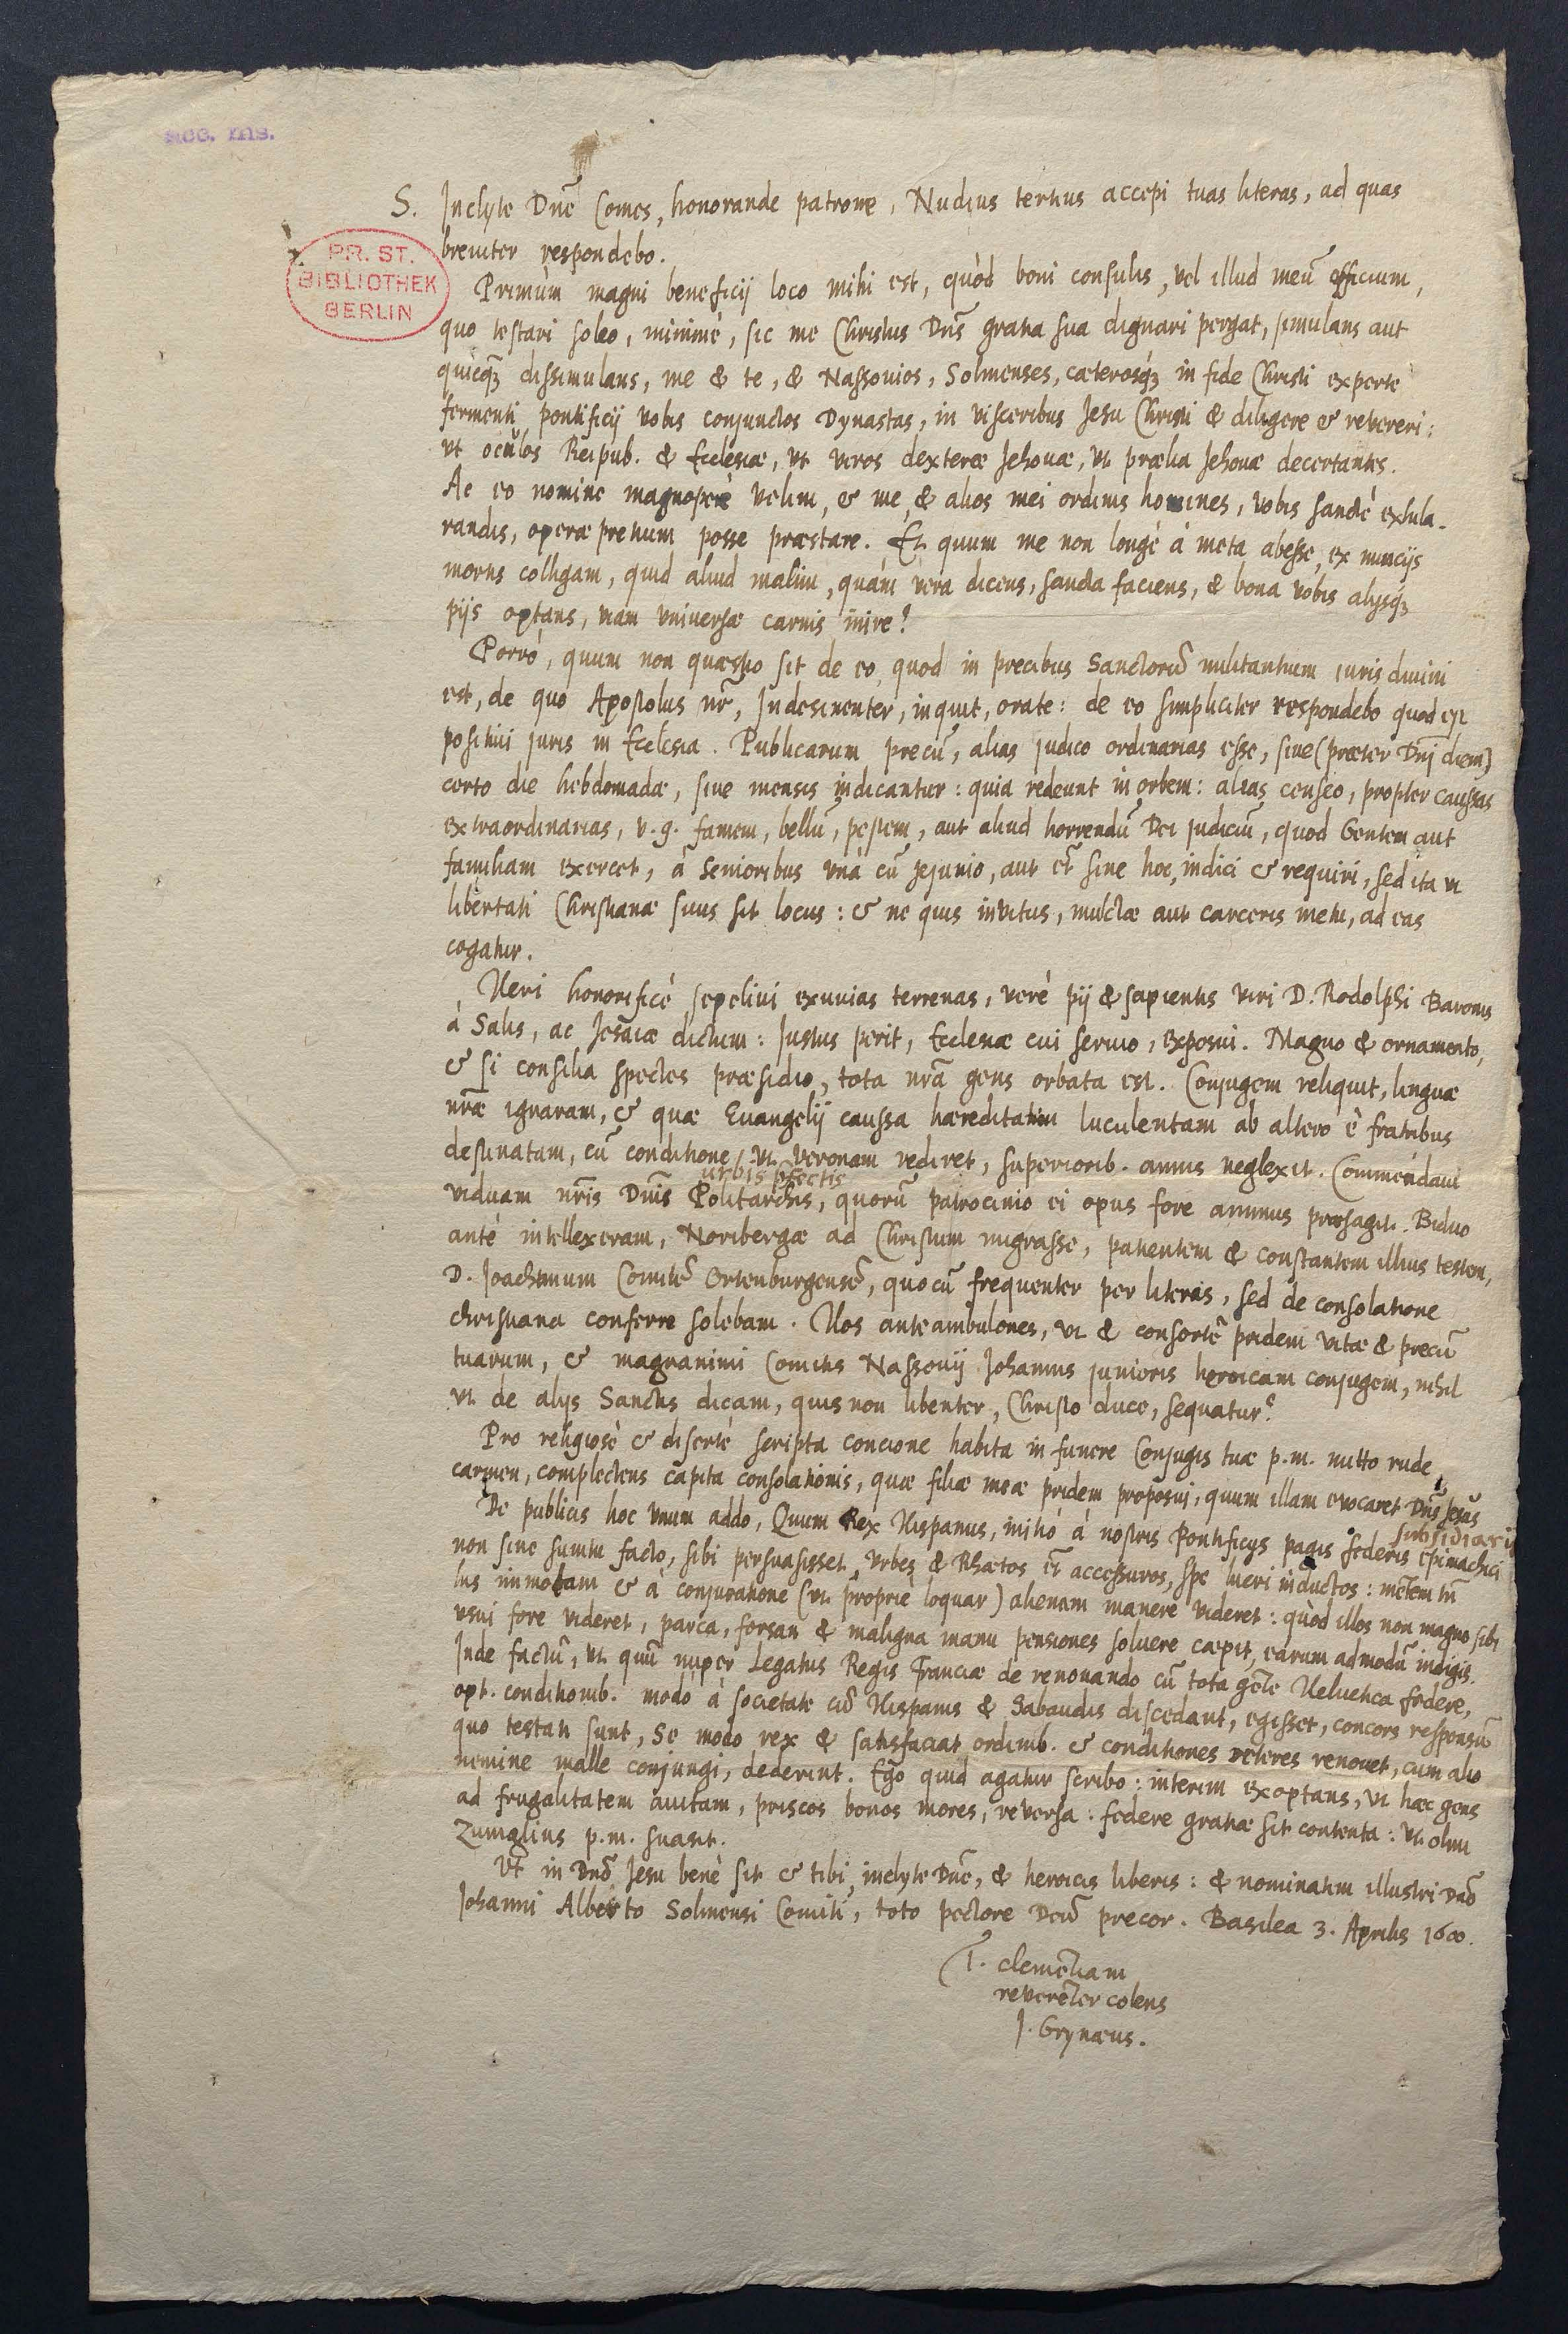 acc. ms.
PR. ST.
BIBLIOTHEK
BERLIN
S. Inclyte Dnē Comes, honorande patrone, Nudius tertius accepi tuas literas, ad quas
breuiter respondebo.
Primùm magni beneficij loco mihi est, quòd boni consulis, vel illud meū officium,
quo testari soleo, minimè, sic me Christus Dns̄ gratia sua dignari pergat, simulans aut
quicq3 dissimulans, me & te, & Nassouios, Solmenses, cæterosq3 in fide Christi experte
fermenti pontificij vobis conjunctos Dynastas, in visceribus Jesu Christi & diligere & revereri:
vt oculos Reipub. & Ecclesiæ, vt viros dexteræ Jehouæ, vt prælia Jehouæ decertantes.
Ac eo nomine magnoperè velim, & me, & alios mei ordinis homines, vobis sanctè exhila-
randis, operæ pretium posse præstare. Et quum me non longè à meta abesse, ex nuncijs
mortis colligam, quid aliud malim, quàm vera dicens, sancta faciens, & bona vobis alijsq3
pijs optans, viam vniuersæ carnis inire?
Porrò, quum non quæstio sit de eo, quod in precibus Sanctorū militantium iuris diuini
est, de quo Apostolus nr̄, Indesinenter, inquit, orate: de eo simpliciter respondebo quod est
positiui juris in Ecclesia. Publicarum precū, alias judico ordinarias esse, siue (præter Dnj̄ diem)
certo die hebdomadæ, siue mensis indicantur: quia redeunt in orbem: alias censeo, propter caussas
extraordinarias, v. g. famem, bellū, pestem, aut aliud horrendū Dei judiciū, quod Gentem aut
familiam exercet, à Senioribus vnà cū jejunio, aut et̄ sine hoc, indici & requiri, sed ita vt
libertati Christianæ suus sit locus: & ne quis invitus, mulctæ aut carceris metu, ad eas
cogatur.
Heri honorificè sepeliui exuuias terrenas, verè pij & sapientis viri D. Rodolphi Baronis
à Salis, ac Jesaiæ dictum: Justus perit, Ecclesiæ cui seruio, exposui. Magno & ornamento,
& si consilia spectes præsidio, tota nrā gens orbata est. Conjugem reliquit, linguæ
nrǣ ignaram, & quæ Euangelij caussa hæreditatem luculentam ab altero è fratribus
destinatam, cū conditione, vt Veronam rediret, superiorib. annis neglexit. Commendaui
urbis pfectis
viduam nrīs Dnīs Politarchis, quorū patrocinio ei opus fore animus præsagit. Biduo
antè intellexeram, Noribergæ ad Christum migrasse, patientem & constantem illius testem,
D. Joachimum Comitē Ortenburgensē, quocū frequenter per literas, sed de consolatione
christiana conferre solebam. Hos anteambulones, vt & consortē pridem vitæ & precū
tuarum, & magnanimi Comitis Nassouij Johannis junioris heroicam conjugem, nihil
vt de alijs Sanctis dicam, quis non libenter, Christo duce, sequatur?
Pro religiosè & disertè scripta concione habita in funere Conjugis tuæ p. m. mitto rude
carmen, complectens capita consolationis, quæ filiæ meæ pridem proposui, quum illam euocaret Dns̄ Jesus
subsidiarij
De publicis hoc vnum addo, Quum Rex Hispanus, initio à nostris Pontificijs pagis federis Epimachici
non sine sumtu facto, sibi persuasisset, vrbes & Rhætos et̄ accessuros, spe lucri inductos: mētem tn̄
his immotam & à conjuratione (vt propriè loquar) alienam manere videret: quòd illos non magno sibi
vsui fore videret, parca, forsan & maligna manu pensiones soluere cæpit, earum admodū indigis.
Inde factū, vt quū nuper Legatus Regis Franciæ de renouando cū tota gēte Heluetica federe,
opt. conditionib. modò à societate cū Hispanis & Sabaudis discedant, egisset, concors responsū
quo testati sunt, Se modo rex & satisfaciat ordinib. & conditiones veteres renouet, cum alio
nemine malle conjungi, dederint. Ego quid agatur scribo: interim exoptans, vt hæc gens
ad frugalitatem auitam, priscos bonos mores, reversa: federe gratiæ sit contenta: vt olim
Zuinglius p. m. suasit.
Vt in Dnō Jesu benè sit & tibi, inclyte Dnē, & heroicis liberis: & nominatim illustri Dnō
Johanni Alberto Solmensi Comiti, toto pectore Deū precor. Basilea 3. Aprilis 1600.
T. clemētiam
reverēter colens
J. Grynæus.